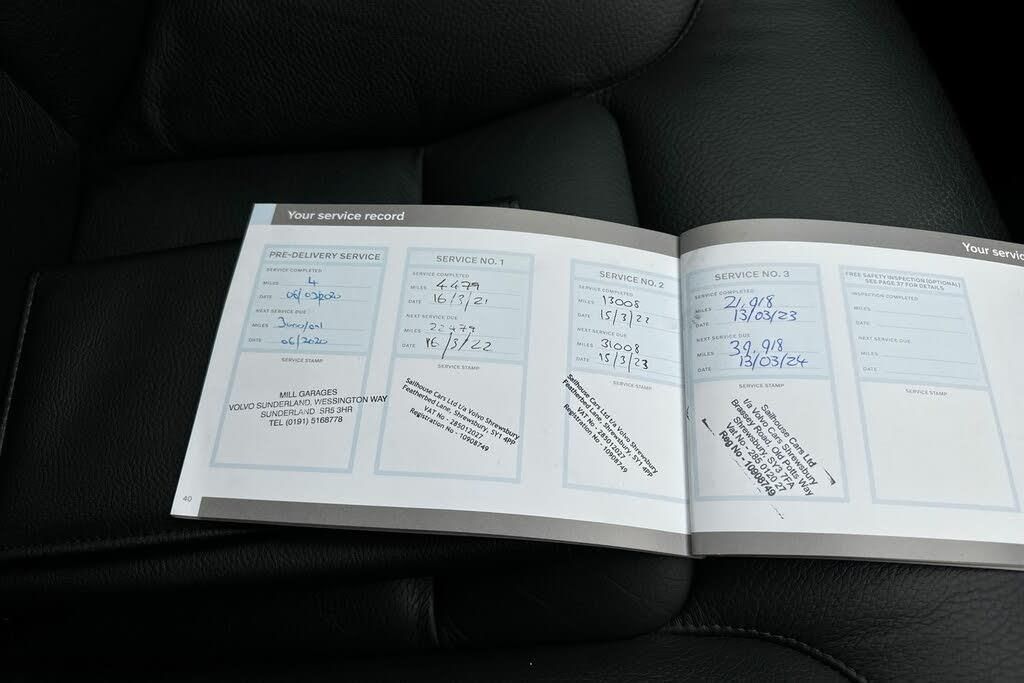 Your service record
PRE-DELIVERY SERVICE
SERVICE COMPLETED
MILES 4
DATE
NEXT SERVICE DUE
MILES
DATE 06/2020
SERVICE STAMP
MILL GARAGES
VOLVO SUNDERLAND, WESSINGTON WAY
SUNDERLAND SR5 3HR
TEL (0191) 5168778
SERVICE NO. 1
SERVICE COMPLETED
MILES 4479
DATE 16/3/21
NEXT SERVICE DUE
MILES 22479
DATE 16/3/22
SERVICE STAMP
Sailhouse Cars Ltd t/a Volvo Shrewsbury
Featherbed Lane, Shrewsbury, SY1 4PP
VAT No - 285012027
Registration No - 10908749
SERVICE NO. 2
SERVICE COMPLETED
MILES 13008
DATE 15/3/22
NEXT SERVICE DUE
MILES 31008
DATE 15/3/23
SERVICE STAMP
Sailhouse Cars Ltd t/a Volvo Shrewsbury
Featherbed Lane, Shrewsbury, SY1 4PP
VAT No - 285012027
Registration No - 10908749
40
Your servic
SERVICE NO. 3
SERVICE COMPLETED
MILES 21,918
DATE 13/03/23
NEXT SERVICE DUE
MILES 39,918
DATE 13/03/24
SERVICE STAMP
Sailhouse Cars Ltd
t/a Volvo Cars Shrewsbury
Brassey Road, Old Potts Way
Shrewsbury, SY3 7FA
Vat No - 285 0120 27
Reg No - 10908749
FREE SAFETY INSPECTION (OPTIONAL)
SEE PAGE 37 FOR DETAILS
INSPECTION COMPLETED
MILES
DATE
NEXT SERVICE DUE
MILES
DATE
SERVICE STAMP